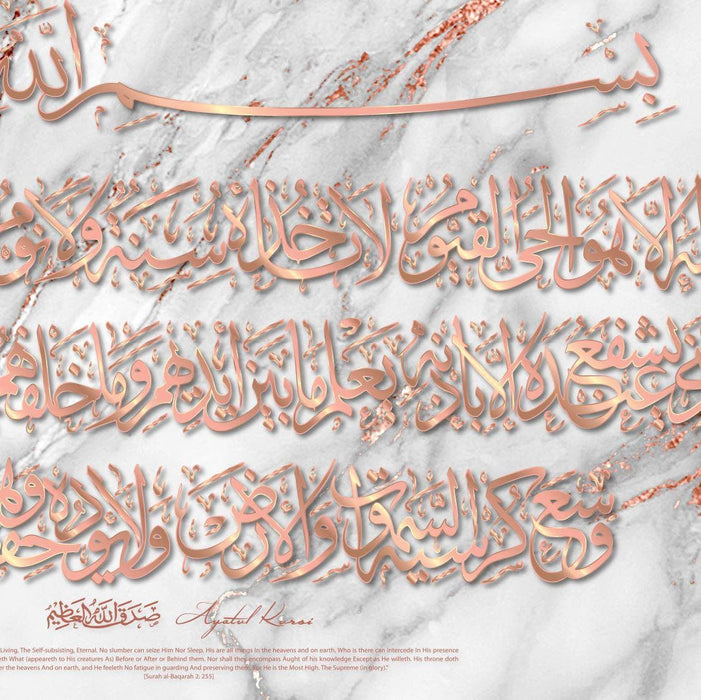 بِسْمِ اللّٰهِ
إِلَّا هُوَ الْحَيُّ الْقَيُّومُ لَا تَأْخُذُهُ سِنَةٌ وَلَا نَوْمٌ
يَشْفَعُ عِنْدَهُ إِلَّا بِإِذْنِهِ يَعْلَمُ مَا بَيْنَ أَيْدِيهِمْ وَمَا خَلْفَهُمْ
وَسِعَ كُرْسِيُّهُ السَّمٰوٰتِ وَالْأَرْضَ وَلَا يَئُودُهُ
صَدَقَ اللّٰهُ الْعَظِيْمُ Ayatul Kursi
Living, The Self-subsisting, Eternal. No slumber can seize Him Nor Sleep. His are all things in the heavens and on earth. Who is there can intercede In His presence
eth What (appeareth to His creatures As) Before or After or Behind them. Nor shall they encompass Aught of his knowledge Except as He willeth. His throne doth
er the heavens And on earth, and He feeleth No fatigue in guarding And preserving them, For He is the Most High. The Supreme (in glory)."
[Surah al-Baqarah 2: 255]